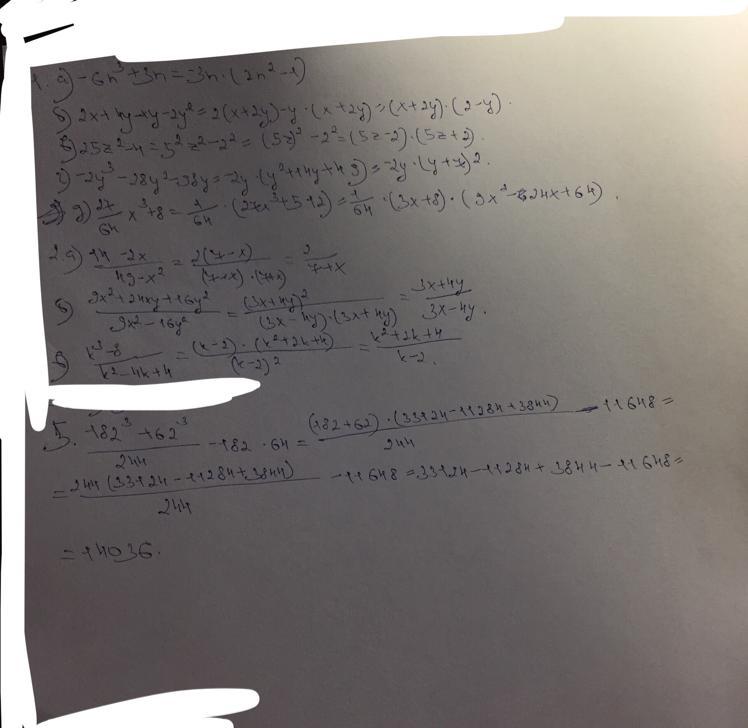 1. а) -6n³+3n=-3n·(2n²-1)
б) 2x+4y-xy-2y²=2(x+2y)-y·(x+2y)=(x+2y)·(2-y).
в) 25z²-4=5²z²-2²=(5z)²-2²=(5z-2)·(5z+2).
г) -2y³-28y²-98y=-2y·(y²+14y+49)=-2y·(y+7)².
д) 27/64 x³+8=1/64·(27x³+512)=1/64·(3x+8)·(9x²-24x+64).
2. а) 14-2x/49-x²=2(7-x)/(7-x)·(7+x)=2/7+x
б) 9x²+24xy+16y²/9x²-16y²=(3x+4y)²/(3x-4y)·(3x+4y)=3x+4y/3x-4y.
в) k³-8/k²-4k+4=(k-2)·(k²+2k+4)/(k-2)²=k²+2k+4/k-2.
5. 182³+62³/244-182·64=(182+62)·(33124-11284+3844)/244-11648=
=244(33124-11284+3844)/244-11648=33124-11284+3844-11648=
=14036.